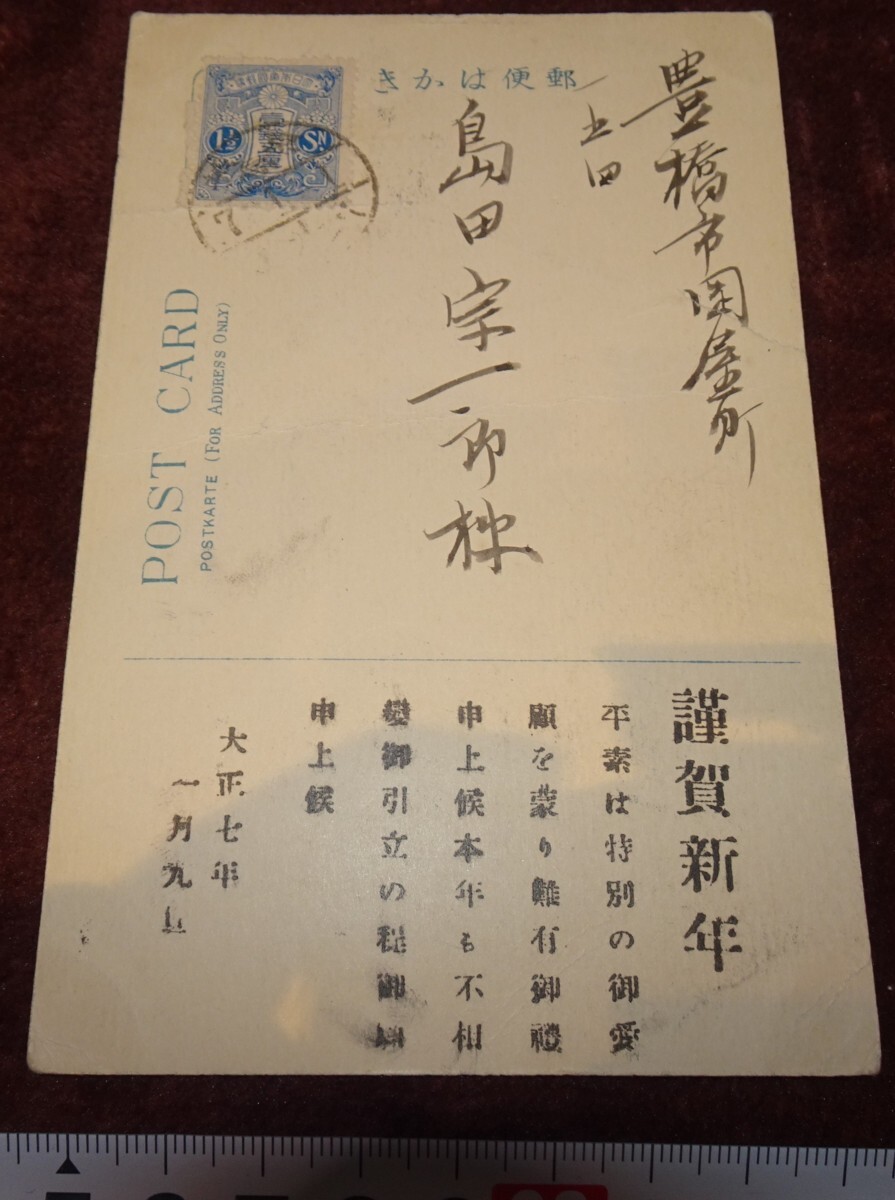 郵便はかき
豊橋市関屋町
島田宗一郎様
1½
SN
POST CARD
POSTKARTE (FOR ADDRESS ONLY)
謹賀新年
平素は特別の御愛
顧を蒙り難有御禮
申上候本年も不相
變御引立の程御願
申上候
大正七年
一月九日